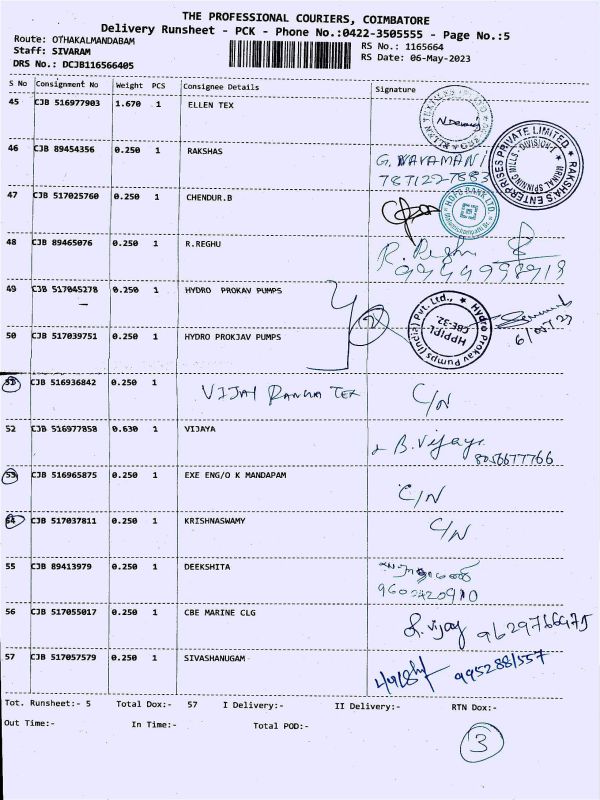 THE PROFESSIONAL COURIERS, COIMBATORE
Delivery Runsheet - PCK - Phone No.:0422-3505555 - Page No.:5
Route: OTHAKALMANDABAM
RS No.: 1165664
Staff: SIVARAM
RS Date: 06-May-2023
DRS No.: DCJB116566405
S No Consignment No Weight PCS Consignee Details Signature
45 CJB 516977903 1.670 1 ELLEN TEX
46 CJB 89454356 0.250 1 RAKSHAS G. NAVAMANI
7871227883
RAKSHA'S ENTERPRISES PRIVATE LIMITED
47 CJB 517025760 0.250 1 CHENDUR.B
48 CJB 89465076 0.250 1 R.REGHU R. Reghu
9944998919
49 CJB 517045278 0.250 1 HYDRO PROKAV PUMPS
Hydro Prokav Pumps (India) Pvt. Ltd.,
HPPIPL
CBE-32.
6/05/23
50 CJB 517039751 0.250 1 HYDRO PROKJAV PUMPS
51 CJB 516936842 0.250 1 VIJAY RANGA TEX C/N
52 CJB 516977858 0.630 1 VIJAYA B. Vijaya
8056677766
53 CJB 516965875 0.250 1 EXE ENG/O K MANDAPAM C/N
54 CJB 517037811 0.250 1 KRISHNASWAMY C/N
55 CJB 89413979 0.250 1 DEEKSHITA
56 CJB 517055017 0.250 1 CBE MARINE CLG S. vijay 9629766475
57 CJB 517057579 0.250 1 SIVASHANUGAM 9952881557
Tot. Runsheet:- 5 Total Dox:- 57 I Delivery:- II Delivery:- RTN Dox:-
Out Time:- In Time:- Total POD:-
3